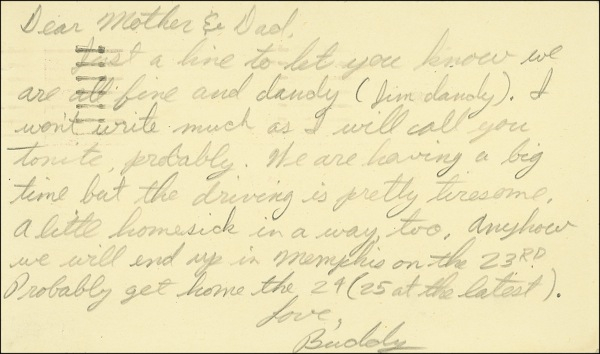 Dear Mother & Dad,
Just a line to let you know we
are all fine and dandy (Jim dandy). I
won't write much as I will call you
tonite, probably. We are having a big
time but the driving is pretty tiresome.
A little homesick in a way, too. Anyhow
we will end up in Memphis on the 23RD
Probably get home the 24 (25 at the latest).
Love,
Buddy